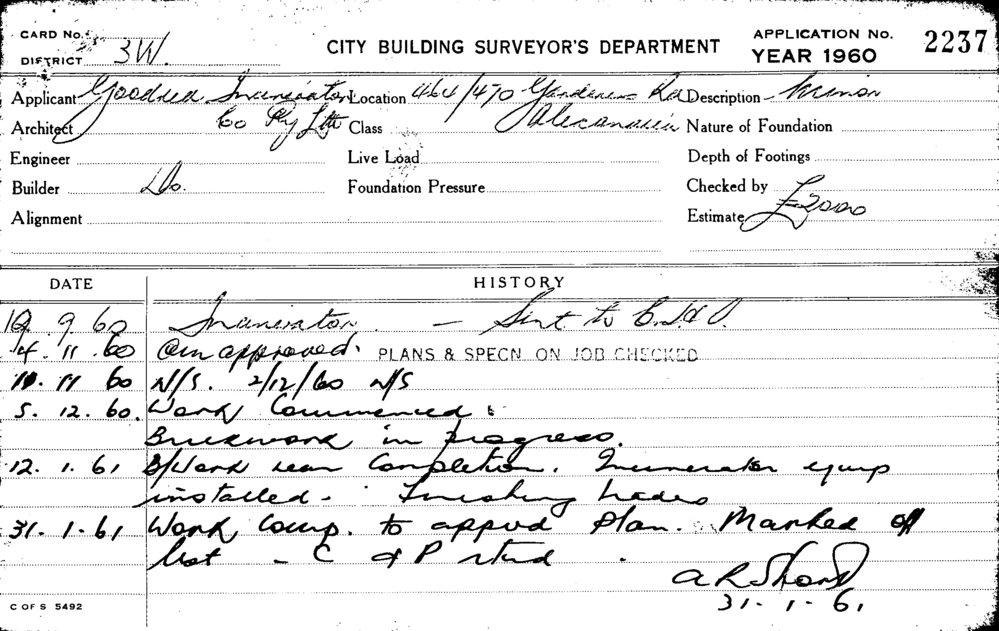 CARD No.
DISTRICT 3W.
CITY BUILDING SURVEYOR'S DEPARTMENT
APPLICATION No. 2237
YEAR 1960
Applicant Incinerator Location 464/470 Gardeners Rd Description Minor
Architect Co Pty Ltd Class Alexandria Nature of Foundation
Engineer Live Load Depth of Footings
Builder Do. Foundation Pressure Checked by
Alignment Estimate £2000
DATE HISTORY
9 60 Incinerator. — Sent to C.I.O.
4. 11. 60 approved. PLANS & SPECN. ON JOB CHECKED
11. 11 60 N/S. 2/12/60 N/S
5. 12. 60. Work Commenced
Brickwork in progress.
12. 1. 61 B/Work near Completion. Incinerator equip
installed - Finishing trades
31. 1. 61 Work Comp. to appvd plan. Marked off
list - C & P rtnd .
31. 1. 61.
C OF S 5492